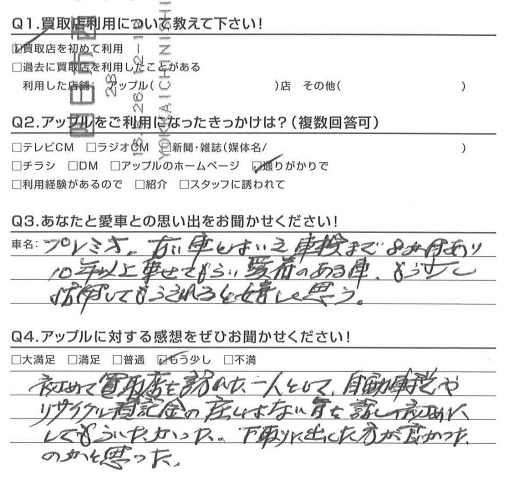 Q1.買取店利用について教えて下さい!
☑買取店を初めて利用
□過去に買取店を利用したことがある
利用した店舗: アップル( )店 その他( )
四日市西
YOKKAICHI NISHI
Q2.アップルをご利用になったきっかけは?(複数回答可)
□テレビCM □ラジオCM □新聞・雑誌(媒体名/ )
□チラシ □DM □アップルのホームページ ☑通りがかりで
□利用経験があるので □紹介 □スタッフに誘われて
Q3.あなたと愛車との思い出をお聞かせください!
車名:プレミオ。古い車とはいえ車検まで8か月あり
10年以上乗せてもらい愛着のある車、もう少し
してもらえると嬉しく思う。
Q4.アップルに対する感想をぜひお聞かせください!
□大満足 □満足 □普通 ☑もう少し □不満
初めて買取店を訪れた一人として、自動車税や
リサイクル預託金の戻しはない旨を話して
してもらいたかった。下取りに出した方が良かった
のかと思った。